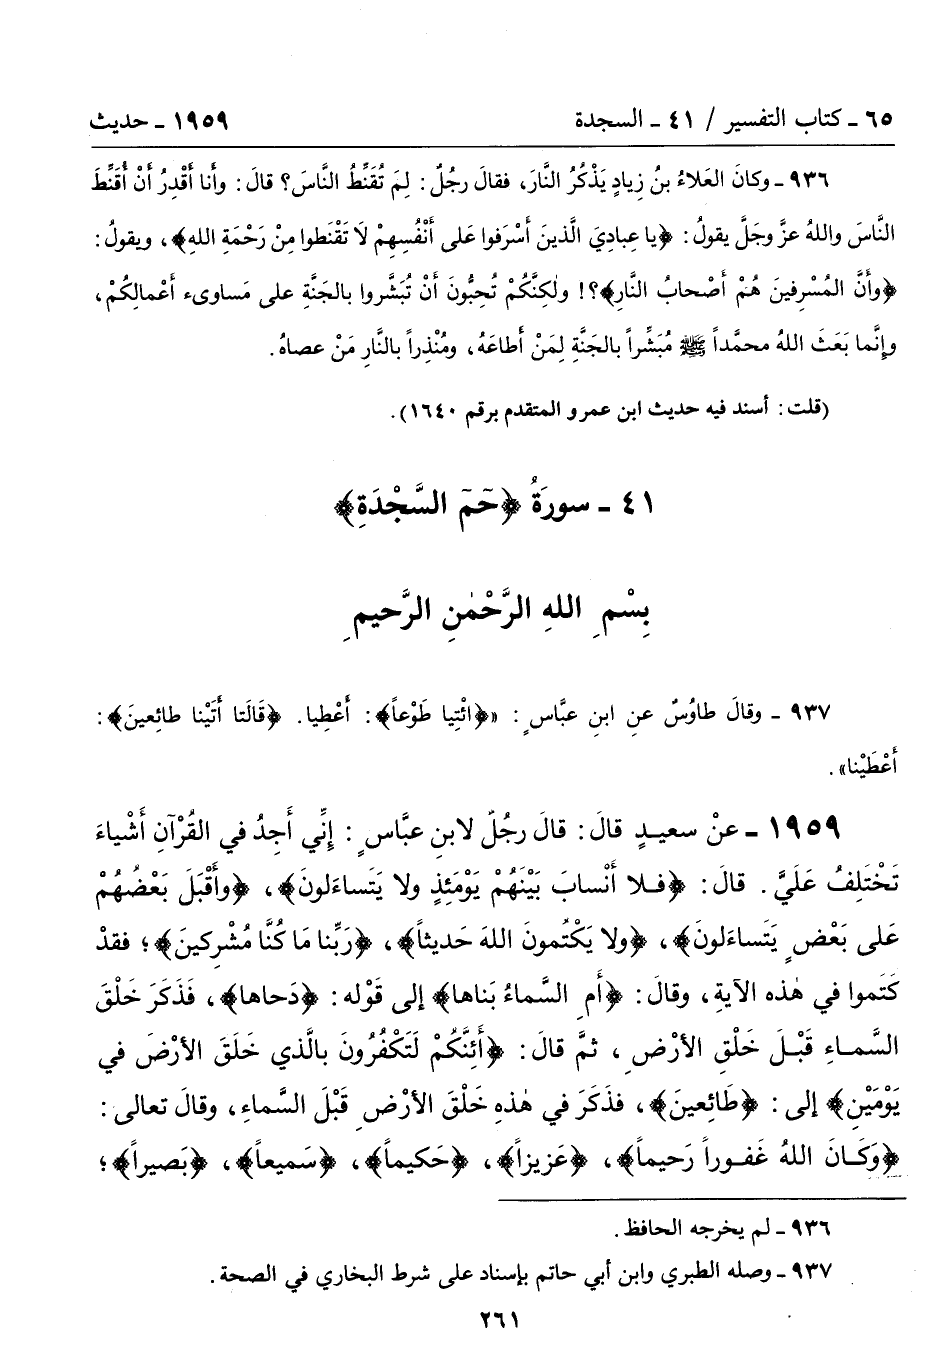 ٦٥ ـ كتاب التفسير / ٤١ ـ السجدة ١٩٥٩ ـ حديث
٩٣٦ ـ وكانَ العَلاءُ بنُ زِيادٍ يَذْكُرُ النَّارَ، فقالَ رجُلٌ: لِمَ تُقَنِّطُ النَّاسَ؟ قالَ: وأنا أَقْدِرُ أَنْ أُقَنِّطَ
النَّاسَ واللهُ عزَّ وجَلَّ يقولُ: ﴿يا عِبادِيَ الَّذينَ أَسْرَفوا عَلى أَنْفُسِهِمْ لَا تَقْنَطوا مِنْ رَحْمَةِ اللهِ﴾، ويقولُ:
﴿وأَنَّ المُسْرِفينَ هُمْ أَصْحابُ النَّارِ﴾؟! ولٰكِنَّكُمْ تُحِبُّونَ أَنْ تُبَشَّروا بالجَنَّةِ على مَساوىء أَعْمالِكُمْ،
وإنَّما بَعَثَ اللهُ محمَّداً ﷺ مُبَشِّراً بالجَنَّةِ لِمَنْ أَطاعَهُ، ومُنْذِراً بالنَّارِ مَنْ عصاهُ.
(قلت: أسند فيه حديث ابن عمرو المتقدم برقم ١٦٤٠).
٤١ ـ سورَةُ ﴿حَمَ السَّجْدَةِ﴾
بِسْمِ اللهِ الرَّحْمٰنِ الرَّحيمِ
٩٣٧ ـ وقالَ طاوُسٌ عنِ ابنِ عبَّاسٍ: «﴿ائْتِيا طَوْعاً﴾: أَعْطِيا. ﴿قَالَتا أَتَيْنا طائعينَ﴾:
أَعْطَيْنا».
١٩٥٩ ـ عنْ سعيدٍ قالَ: قالَ رجُلٌ لابنِ عبَّاسٍ: إِنِّي أَجِدُ في القُرْآنِ أَشْياءَ
تَخْتَلِفُ عَلَيَّ. قالَ: ﴿فـلا أَنْسابَ بَيْنَهُمْ يَوْمَئِذٍ ولا يَتَساءَلونَ﴾، ﴿وأَقْبَلَ بَعْضُهُمْ
عَلى بَعْضٍ يَتَساءَلونَ﴾، ﴿ولا يَكْتُمونَ اللهَ حَديثاً﴾، ﴿رَبِّنا مَا كُنَّا مُشْرِكينَ﴾؛ فقدْ
كَتَموا في هٰذه الآيةِ، وقالَ: ﴿أَمِ السَّماءُ بَناها﴾ إلى قوْله: ﴿دَحاها﴾، فَذَكَرَ خَلْقَ
السَّمـاءِ قَبْـلَ خَلْقِ الأرْضِ، ثمَّ قالَ: ﴿أَئِنَّكُمْ لَتَكْفُرُونَ بالَّذي خَلَقَ الأرْضَ في
يَوْمَيْنِ﴾ إلى: ﴿طَائِعينَ﴾، فذَكَرَ في هٰذِهِ خَلْقَ الأرْضِ قَبْلَ السَّماءِ، وقالَ تعالى:
﴿وَكَـانَ اللهُ غَفـوراً رَحيماً﴾، ﴿عَزيزاً﴾، ﴿حَكيماً﴾، ﴿سَميعاً﴾، ﴿بَصيراً﴾؛
٩٣٦ ـ لم يخرجه الحافظ.
٩٣٧ ـ وصله الطبري وابن أبي حاتم بإسناد على شرط البخاري في الصحة.
٢٦١